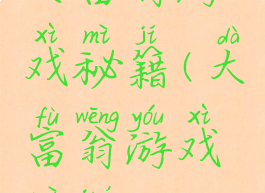 xì mì jí dà
戏秘籍(大
fù wēng yóu xì
富翁游戏